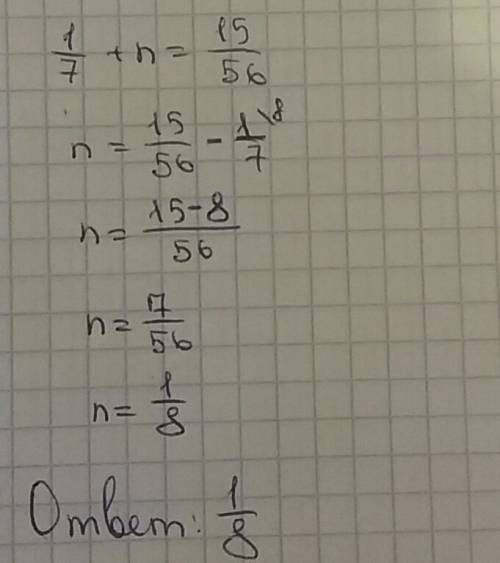 1/7 + n = 15/56
n = 15/56 - 1\8/7
n = 15-8/56
n = 7/56
n = 1/8
Ответ: 1/8